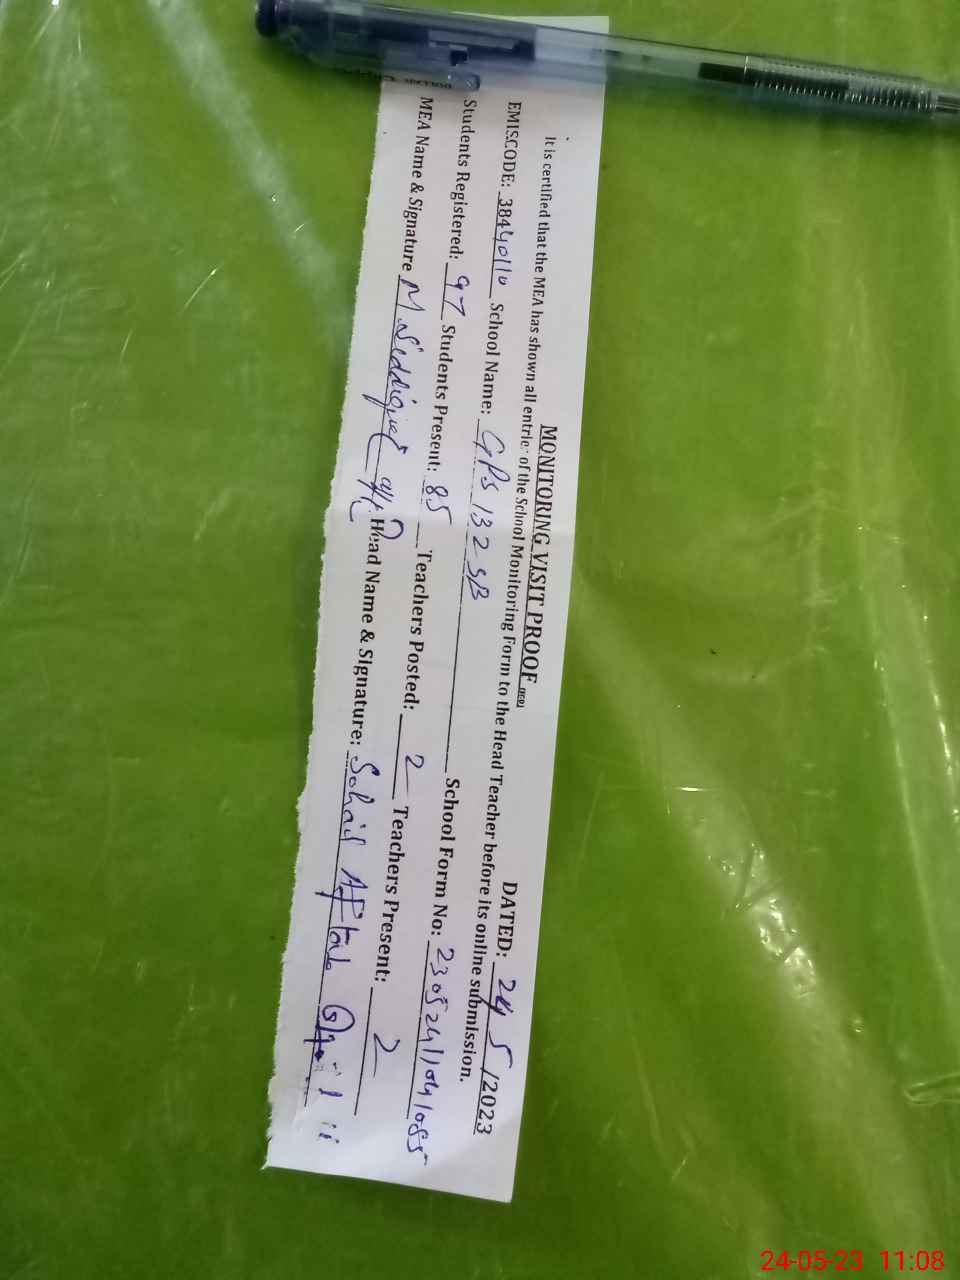 MONITORING VISIT PROOF DATED: 24/5/2023
It is certified that the MEA has shown all entries of the School Monitoring Form to the Head Teacher before its online submission.
EMISCODE: 38440110 School Name: GPS 132 SB School Form No: 230524110411085
Students Registered: 97 Students Present: 85 Teachers Posted: 2 Teachers Present: 2
MEA Name & Signature M. Siddique Head Name & Signature: Sohail Aftab
24-05-23 11:08